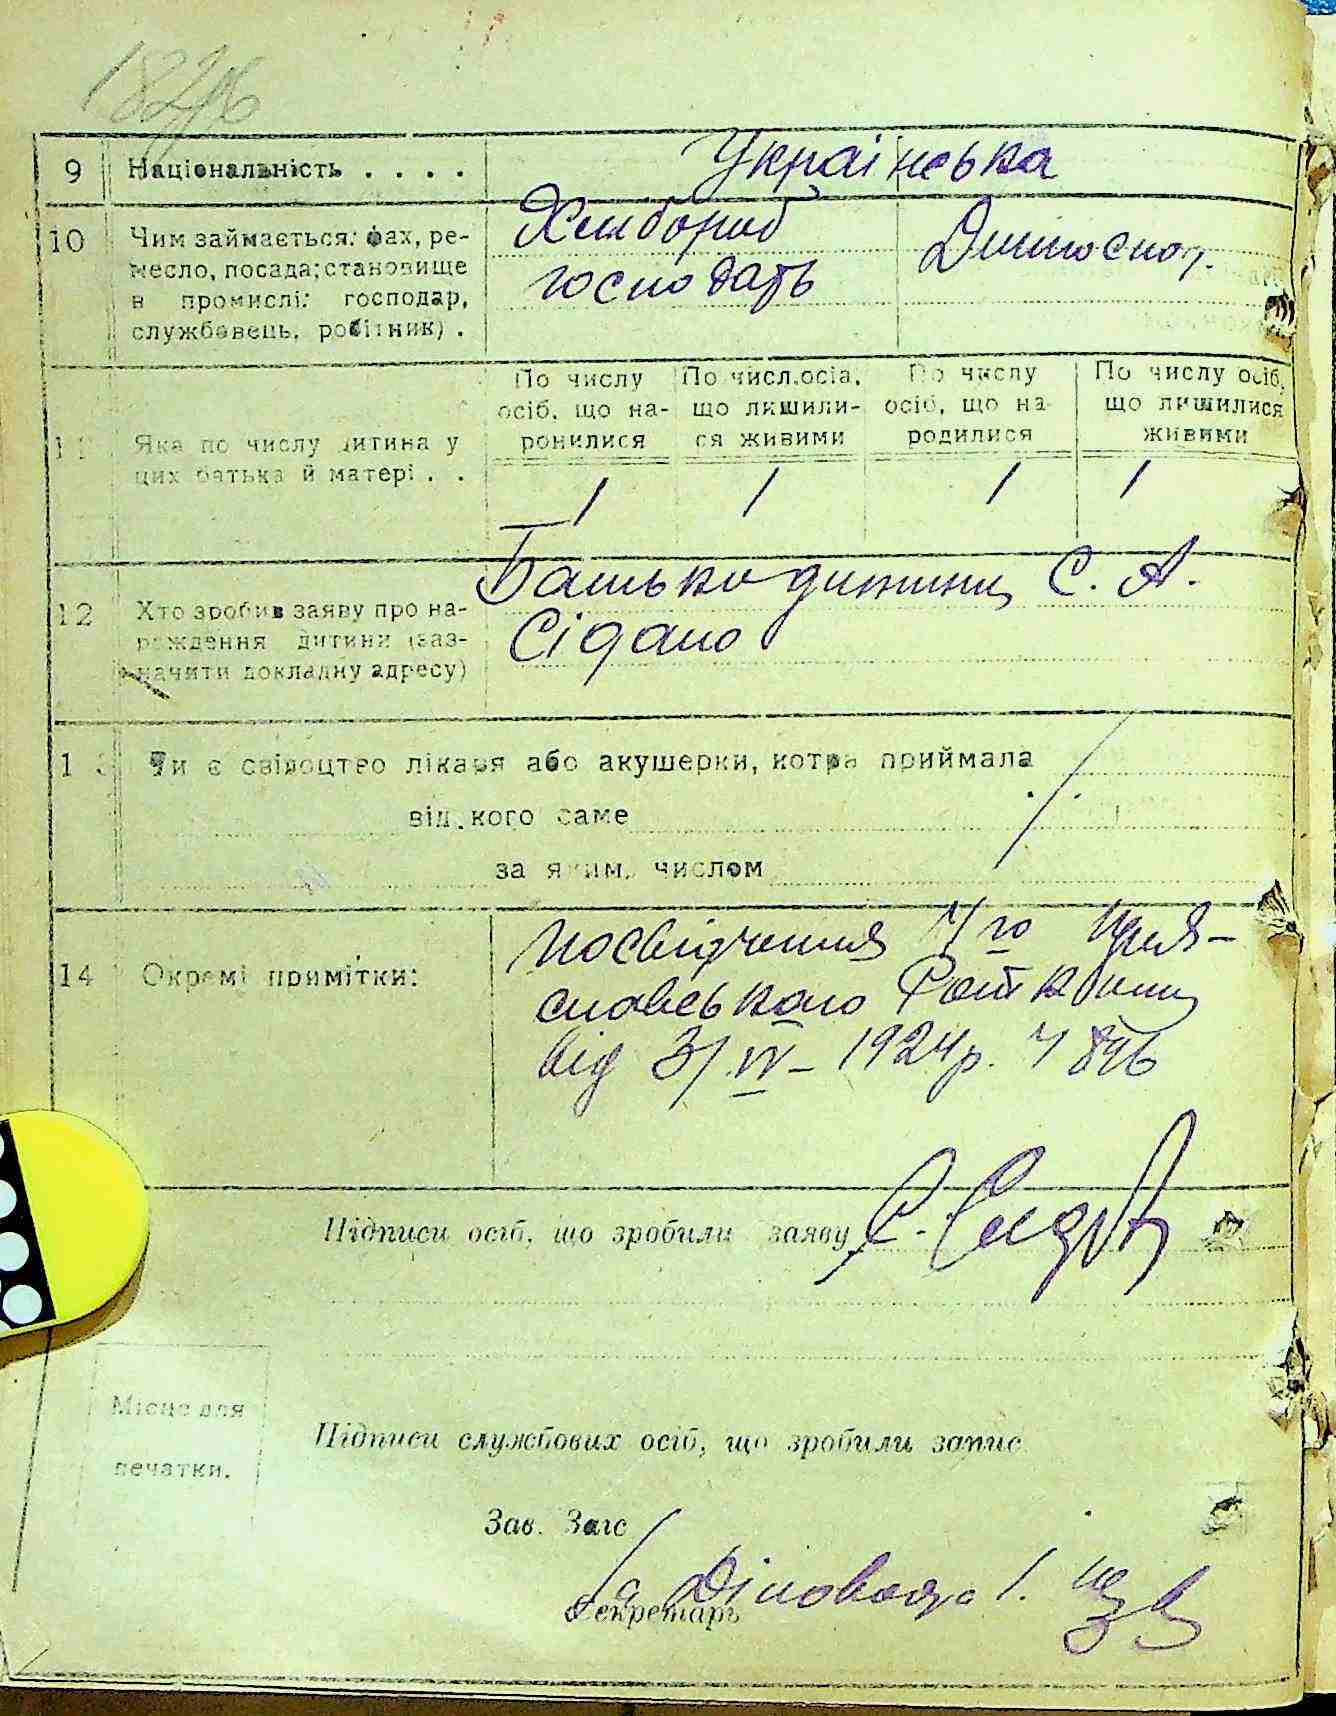 9 Національність . . . . Українська
10 Чим займається: фах, ре-
месло, посада; становище
в промислі: господар,
службовець, робітник) .
Хлібороб
господарь
Домогоспод.
11 Яка по числу дитина у
цих батька й матері . .
По числу
осіб, що на-
родилися
По числ. осіб,
що лишили-
ся живими
По числу
осіб, що на-
родилися
По числу осіб,
що лишилися
живими
1 1 1 1
12 Хто зробив заяву про на-
рождення дитини (заз-
начити докладну адресу)
Батько дитини С. А.
Сідаш
13 Чи є свідоцтво лікаря або акушерки, котра приймала
від кого саме
за яким числом
14 Окремі примітки:
посвідчення
від 3/IV – 1924 р. Ч
Підписи осіб, що зробили заяву
Місце для
печатки.
Підписи службових осіб, що зробили запис
Зав. Загс
Секретарь
Діловод